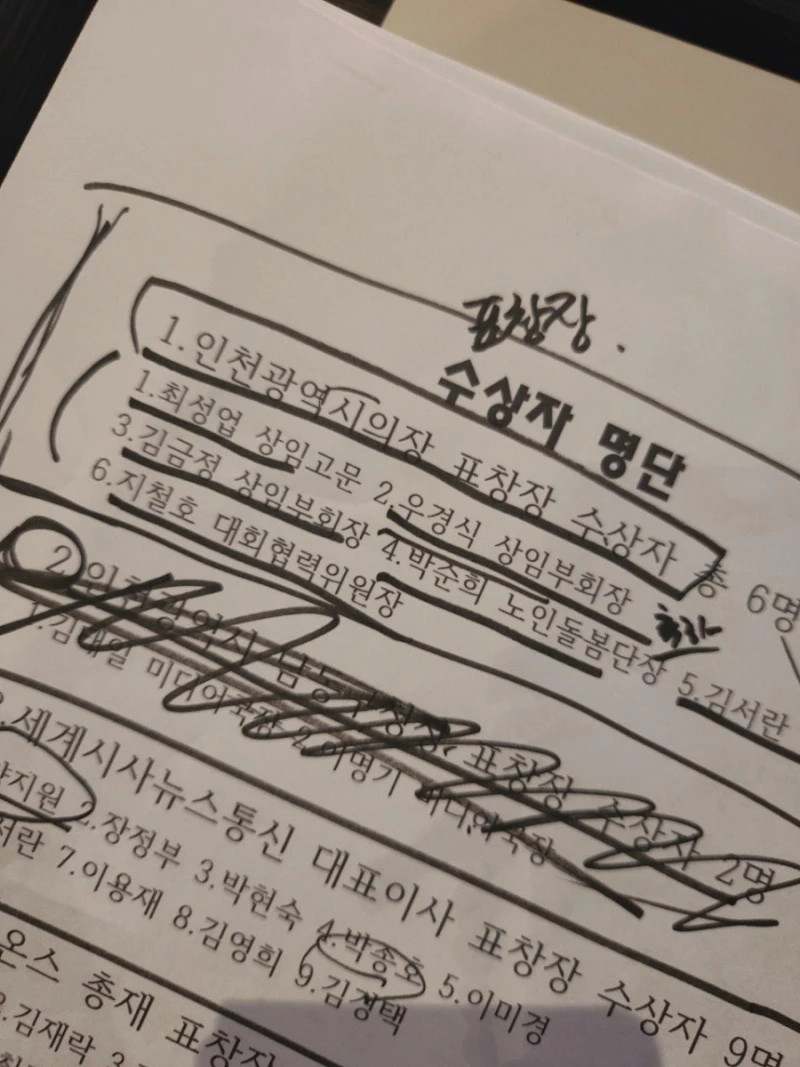 표창장.
수상자 명단
1.인천광역시의장 표창장 수상자 총 6명
1.최성업 상임고문 2.우경식 상임부회장
3.김금정 상임부회장 4.박순희 노인돌봄단장 5.김서란
6.지철호 대회협력위원장
2.인천광역시 남동구청장 표창장 수상자 2명
미디어국장 2.이명기 미디어국장
3.세계시사뉴스통신 대표이사 표창장 수상자 9명
지원 2.장정부 3.박현숙 4.박종호 5.이미경
서란 7.이용재 8.김영희 9.김정택
온스 총재 표창장
김재락 3.